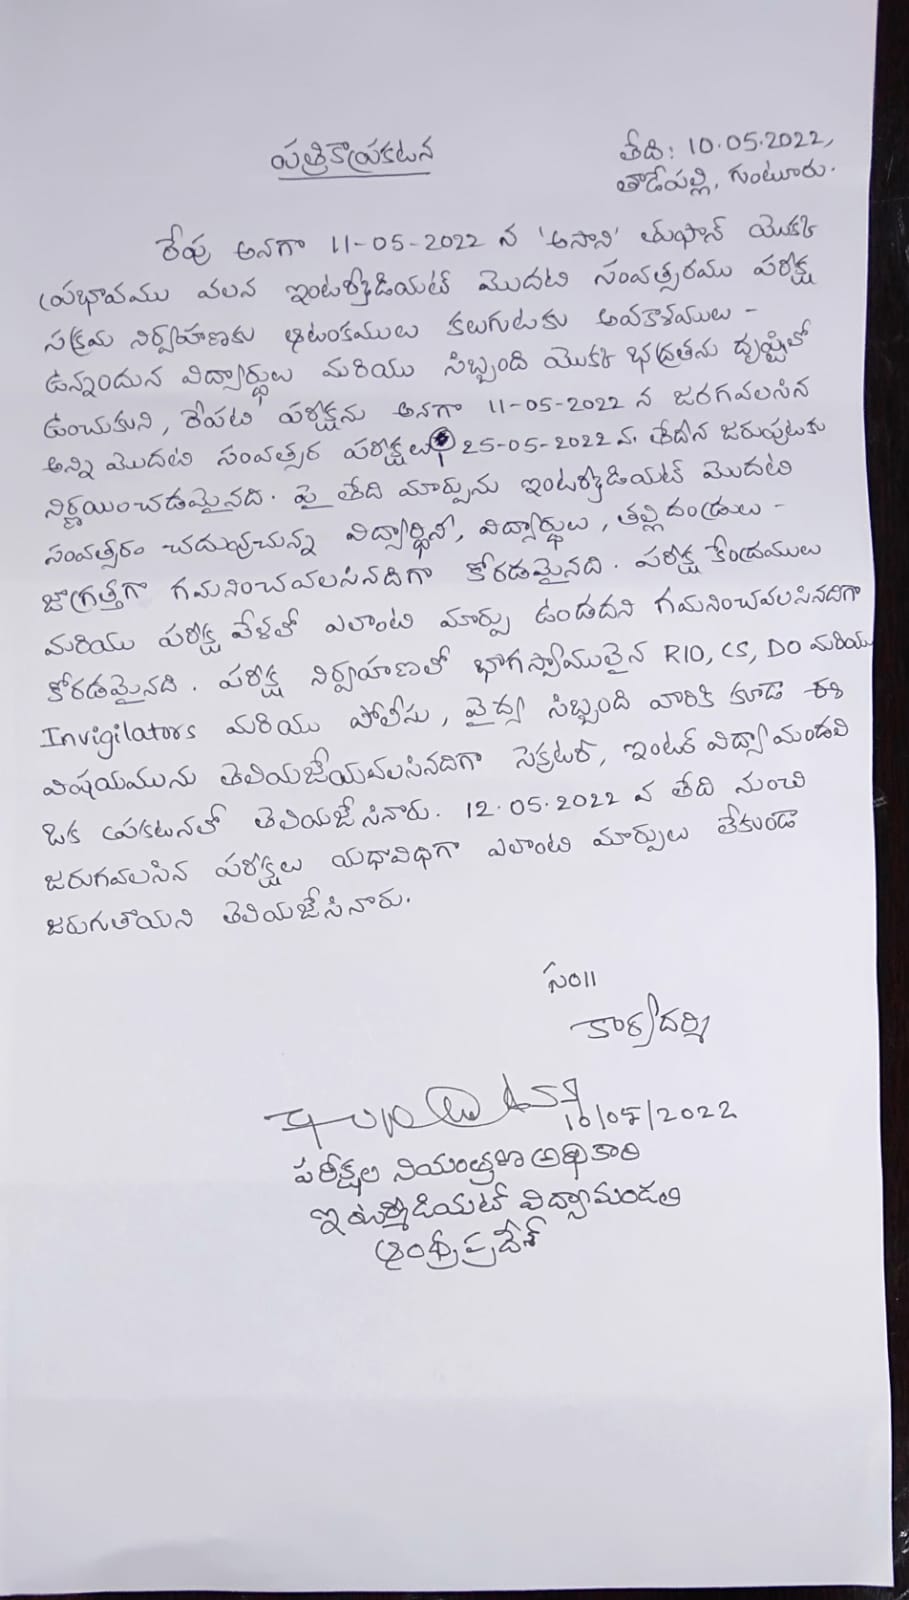 పత్రికాప్రకటన
తేది: 10.05.2022,
తాడేపల్లి, గుంటూరు.
రేపు అనగా 11-05-2022 న 'అసాని' తుఫాన్ యొక్క
ప్రభావము వలన ఇంటర్మీడియట్ మొదటి సంవత్సరము పరీక్ష
సక్రమ నిర్వహణకు ఆటంకములు కలుగుటకు అవకాశములు -
ఉన్నందున విద్యార్థులు మరియు సిబ్బంది యొక్క భద్రతను దృష్టిలో
ఉంచుకుని, రేపటి పరీక్షను అనగా 11-05-2022 న జరగవలసిన
అన్ని మొదటి సంవత్సర పరీక్షలు 25-05-2022 వ. తేదీన జరుపుటకు
నిర్ణయించడమైనది. పై తేది మార్పును ఇంటర్మీడియట్ మొదటి
సంవత్సరం చదువుచున్న విద్యార్థినీ, విద్యార్థులు, తల్లిదండ్రులు -
జాగ్రత్తగా గమనించవలసినదిగా కోరడమైనది. పరీక్ష కేంద్రములు
మరియు పరీక్ష వేళలో ఎలాంటి మార్పు ఉండదని గమనించవలసినదిగా
కోరడమైనది. పరీక్ష నిర్వహణలో భాగస్వాములైన RIO, CS, DO మరియు
Invigilators మరియు పోలీసు, వైద్య సిబ్బంది వారికి కూడా ఈ
విషయమును తెలియజేయవలసినదిగా సెక్రటరీ, ఇంటర్ విద్యామండలి
ఒక ప్రకటనలో తెలియజేసినారు. 12.05.2022 వ తేది నుంచి
జరుగవలసిన పరీక్షలు యథావిధిగా ఎలాంటి మార్పులు లేకుండా
జరుగుతాయని తెలియజేసినారు.
సం॥
కార్యదర్శి
10/05/2022
పరీక్షల నియంత్రణ అధికారి
ఇంటర్మీడియట్ విద్యామండలి
ఆంధ్రప్రదేశ్